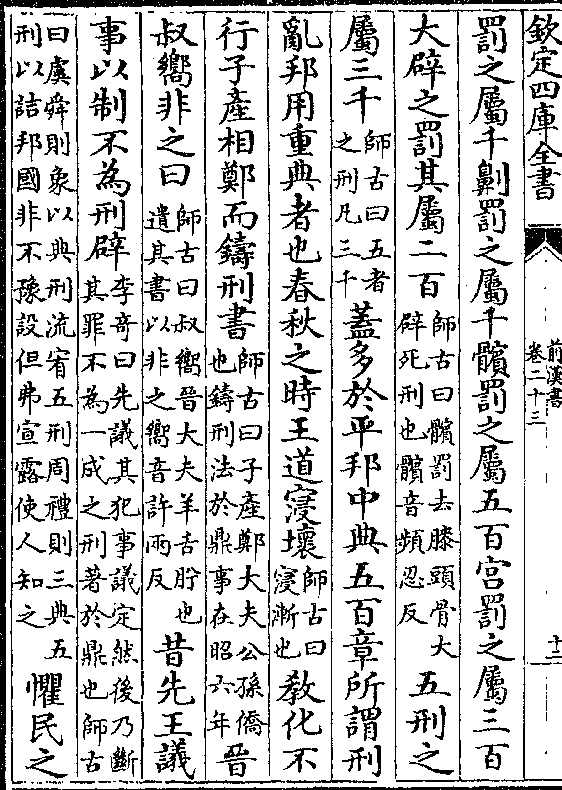 欽定四庫全書
前漢書
卷二十三
十二
罰之屬千劓罰之屬千髕罰之屬五百宮罰之屬三百
大辟之罰其屬二百師古曰髕罰去膝頭骨大辟死刑也髕音頻忍反五刑之
屬三千師古曰五者之刑凡三千蓋多於平邦中典五百章所謂刑
亂邦用重典者也春秋之時王道寖壞師古曰寖漸也教化不
行子產相鄭而鑄刑書師古曰子產鄭大夫公孫僑也鑄刑法於鼎事在昭六年晉
叔嚮非之曰師古曰叔嚮晉大夫羊舌肸也遺其書以非之嚮音許兩反昔先王議
事以制不為刑辟李奇曰先議其犯事議定然後乃斷其罪不為一成之刑著於鼎也師古
曰虞舜則象以典刑流宥五刑周禮則三典五刑以詰邦國非不豫設但弗宣露使人知之懼民之